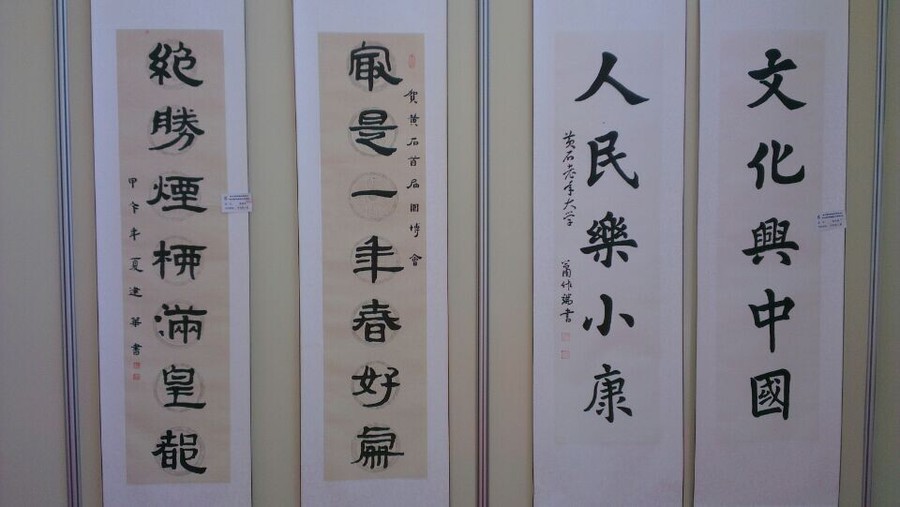 文化興中國
人民樂小康
黄石老年大学
書
賀黄石首届園博會
寂是一年春好處
絶勝煙柳滿皇都
甲午年夏建華書